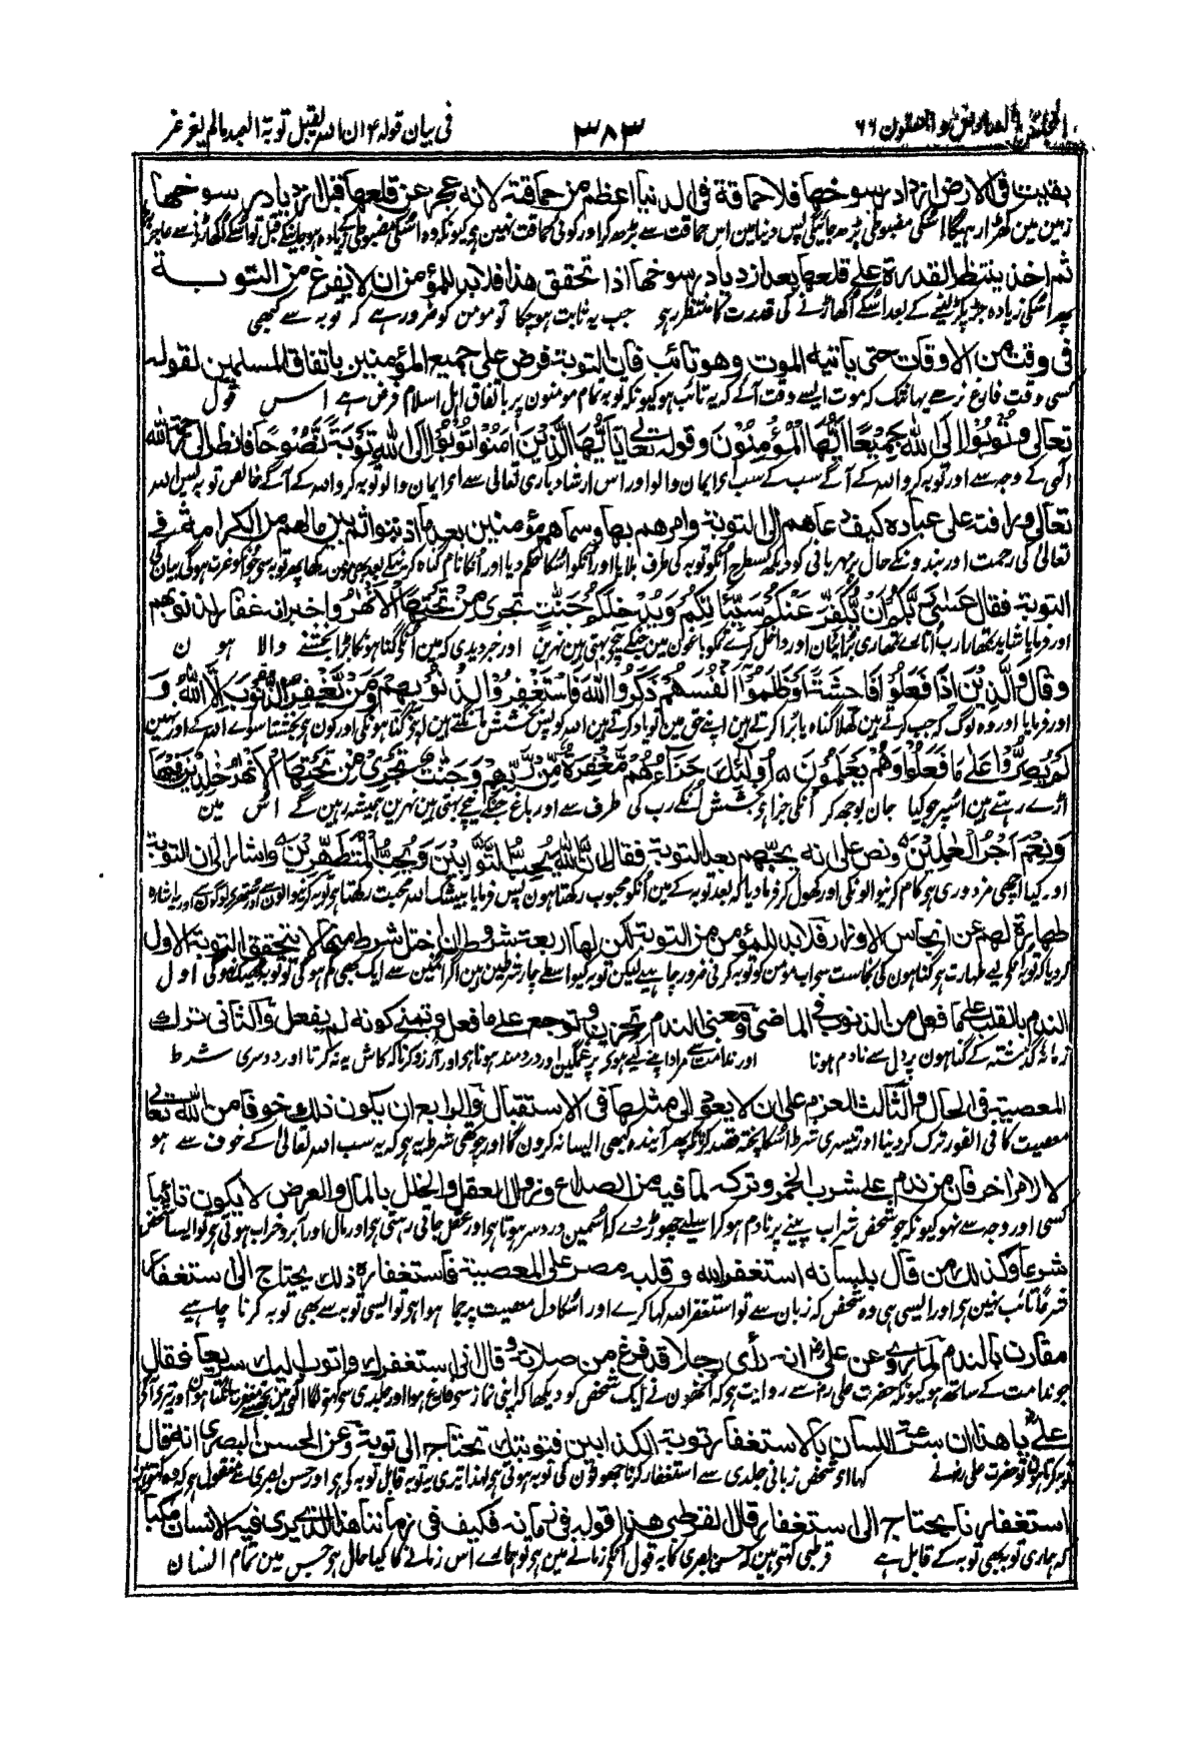 المجلس السادس والستون ۶۶
۳۸۳
فی بیان قوله ۴ ان الله یقبل توبة العبد مالم یغرغر
بقیت فی الارض ازداد رسوخها فلا حماقة فی الدنیا اعظم من حماقته لانه عجز عن قلعها قبل ازدیاد رسوخها
زمین مین کھڑا رہیگا اسکی مضبوطی بڑھ جائیگی پس دنیا مین اس حماقت سے بڑھ کر اور کوئی حماقت نہین ہے کیونکہ وہ اسکی مضبوطی کے زیادہ ہو جانیکے قبل تو اسکے اکھاڑنے سے عاجز رہا
ثم اخذ ینتظر القدرة علی قلعها بعد ازدیاد رسوخها اذا تحقق هذا فلا بد للمؤمن ان لا یفرغ من التوبة
پھر اسکی زیادہ جڑ پکڑ لینے کے بعد اسکے اکھاڑنے کی قدرت کا منتظر رہو جب یہ ثابت ہو چکا تو مومن کو ضرور ہے کہ توبہ سے کبھی
فی وقت من الاوقات حتی یاتیه الموت وهو تائب فان التوبة فرض علی جمیع المؤمنین باتفاق المسلمین لقوله
کسی وقت فارغ نرہے یہانتک کہ موت ایسے وقت آئے کہ یہ تائب ہو کیونکہ توبہ تمام مومنون پر باتفاق اہل اسلام فرض ہے اس قول
تعالی وَتُوْبُوْا اِلَى اللهِ جَمِیْعًا اَیُّهَا الْمُؤْمِنُوْنَ وقوله تعالی یَا اَیُّهَا الَّذِیْنَ اٰمَنُوْا تُوْبُوْا اِلَى اللهِ تَوْبَةً نَّصُوْحًا فانظر الی رحمة الله
الہی کے وجہ سے اور توبہ کرو اللہ کے آگے سب کے سب ای ایمان والو اور اس ارشاد باری تعالی سے ای ایمان والو توبہ کرو اللہ کے آگے خالص توبہ پس اللہ
تعالی ورافته علی عباده کیف دعاهم الی التوبة وامرهم بها وسماهم مؤمنین بعد ما اذنبوا ثم بین مالهم من الکرامة فی
تعالی کی رحمت اور بندونکے حال پر مہربانی کو دیکھ کسطرح انکو توبہ کی طرف بلایا اور انکو اسکا حکم دیا اور انکا نام گناہ کرنیکے بعد بھی مومن رکھا پھر توبہ سے جو انکو عزت ہوگی بیان کی
التوبة فقال عَسٰی رَبُّکُمْ اَنْ یُّکَفِّرَ عَنْکُمْ سَیِّئَاتِکُمْ وَیُدْخِلَکُمْ جَنّٰتٍ تَجْرِیْ مِنْ تَحْتِهَا الْاَنْهٰرُ واخبر انه غفار لذنوبهم
اور فرمایا شاید تمھارا رب اتارے تمھاری برائیان اور داخل کرے تمکو باغون مین جنکے نیچے بہتی ہین نہرین اور خبر دیدی کہ مین انکے گناہونکا بڑا بخشنے والا ہون
وقال وَالَّذِیْنَ اِذَا فَعَلُوْا فَاحِشَةً اَوْ ظَلَمُوْا اَنْفُسَهُمْ ذَکَرُوا اللهَ فَاسْتَغْفَرُوْا لِذُنُوْبِهِمْ وَمَنْ یَّغْفِرُ الذُّنُوْبَ اِلَّا اللهُ وَ
اور فرمایا اور وہ لوگ کہ جب کرتے ہین کھلا گناہ یا برا کرتے ہین اپنے حق مین تو یاد کرتے ہین اللہ کو پس بخشش مانگتے ہین اپنے گناہونکی اور کون ہے بخشتا سواے اللہ کے اور نہین
لَمْ یُصِرُّوْا عَلٰی مَا فَعَلُوْا وَهُمْ یَعْلَمُوْنَ اُولٰٓئِكَ جَزَآؤُهُمْ مَّغْفِرَةٌ مِّنْ رَّبِّهِمْ وَجَنّٰتٌ تَجْرِیْ مِنْ تَحْتِهَا الْاَنْهٰرُ خٰلِدِیْنَ فِیْهَا
اڑے رہتے ہین اسپر جو کیا جان بوجھ کر انکی جزا ہے بخشش انکے رب کی طرف سے اور باغ جنکے نیچے بہتی ہین نہرین ہمیشہ رہین گے اس مین
وَنِعْمَ اَجْرُ الْعٰمِلِیْنَ ونص علی انه یحبهم بعد التوبة فقال اِنَّ اللهَ یُحِبُّ التَّوَّابِیْنَ وَیُحِبُّ الْمُتَطَهِّرِیْنَ واشار الی ان التوبة
اور کیا اچھی مزدوری ہے کام کرنیوالونکی اور کھول کر فرمادیا کہ بعد توبہ کے مین انکو محبوب رکھتا ہون پس فرمایا بیشک اللہ محبت رکھتا ہے توبہ کرنیوالون اور ستھرے لوگون سے اور یہ اشارہ
طهارة لهم عن انجاس الاوزار فلا بد للمؤمن من التوبة لکن لها اربعة شروط ان اختل شرط منها لا یتحقق التوبة الاول
کردیا کہ توبہ انکے لیے طہارت ہے گناہون کی نجاست سے اب مومن کو توبہ کرنی ضرور چاہیے لیکن توبہ کیواسطے چار شرطین ہین اگر انمین سے ایک بھی کم ہوگی تو توبہ ٹھیک نہوگی اول
الندم بالقلب علی ما فعل من الذنوب فی الماضی ومعنی الندم تحزن وتوجع علی ما فعل وتمنی کونه لم یفعل والثانی ترك
زمانۂ گذشتہ کے گناہون پر دل سے نادم ہونا اور ندامت سے مراد اپنے کیے ہوے پر غمگین اور دردمند ہونا ہے اور آرزو کرنا کہ کاش یہ نہ کرتا اور دوسری شرط
المعصیة فی الحال والثالث العزم علی ان لا یعود الی مثلها فی الاستقبال والرابع ان یکون ذلك خوفا من الله تعالی
معصیت کا فی الفور ترک کر دینا اور تیسری شرط اسکا پختہ قصد کرنا کہ پھر آیندہ کبھی ایسا نہ کرون گا اور چوتھی شرط یہ ہے کہ یہ سب اللہ تعالی کے خوف سے ہو
لا لامر اخر فان من ندم علی شرب الخمر وترکه لما فیه من الصداع وزوال العقل والخلل بالمال والعرض لا یکون تائبا
کسی اور وجہ سے نہو کیونکہ جو شخص شراب پینے پر نادم ہو کر اسلیے چھوڑ دے کہ اسمین درد سر ہوتا ہے اور عقل جاتی رہتی ہے اور مال اور آبرو خراب ہوتی ہے تو ایسا شخص
شرعا وکذلك من قال بلسانه استغفر الله وقلبه مصر علی المعصیة فاستغفاره ذلك یحتاج الی استغفار
شرعًا تائب نہین ہے اور ایسی ہی وہ شخص کہ زبان سے تو استغفر اللہ کہا کرے اور اسکا دل معصیت پر جما ہوا ہو تو ایسی توبہ سے بھی توبہ کرنا چاہیے
مقارن بالندم لما روی عن علی رض انه رأی رجلا قد فرغ من صلاته وقال انی استغفرك واتوب الیك سریعا فقال
جو ندامت کے ساتھ ہو کیونکہ حضرت علی رض سے روایت ہے کہ انھون نے ایک شخص کو دیکھا کہ اپنی نماز سے فارغ ہوا اور جلدی سے کہنے لگا الہی مین تجھسے مغفرت مانگتا ہون اور تیرے آگے
علی یا هذا ان سرعة اللسان بالاستغفار توبة الکذابین فتوبتك تحتاج الی توبة وعن الحسن البصری انه قال
توبہ کرتا ہون تو حضرت علی رض نے کہا او شخص زبانی جلدی سے استغفار کرنا جھوٹون کی توبہ ہوتی ہے لہذا تیری یہ توبہ قابل توبہ کی ہے اور حسن بصری سے منقول ہے کہ وہ کہتے ہین
استغفارنا یحتاج الی استغفار قال القرطبی هذا قوله فی زمانه فکیف فی زماننا هذا الذی یری فیه الانسان مکبا
کہ ہماری توبہ بھی توبہ کے قابل ہے قرطبی کہتے ہین کہ حسن بصری کا یہ قول انکے زمانے مین ہے تو ہمارے اس زمانے کا کیا حال ہے جس مین تمام انسان